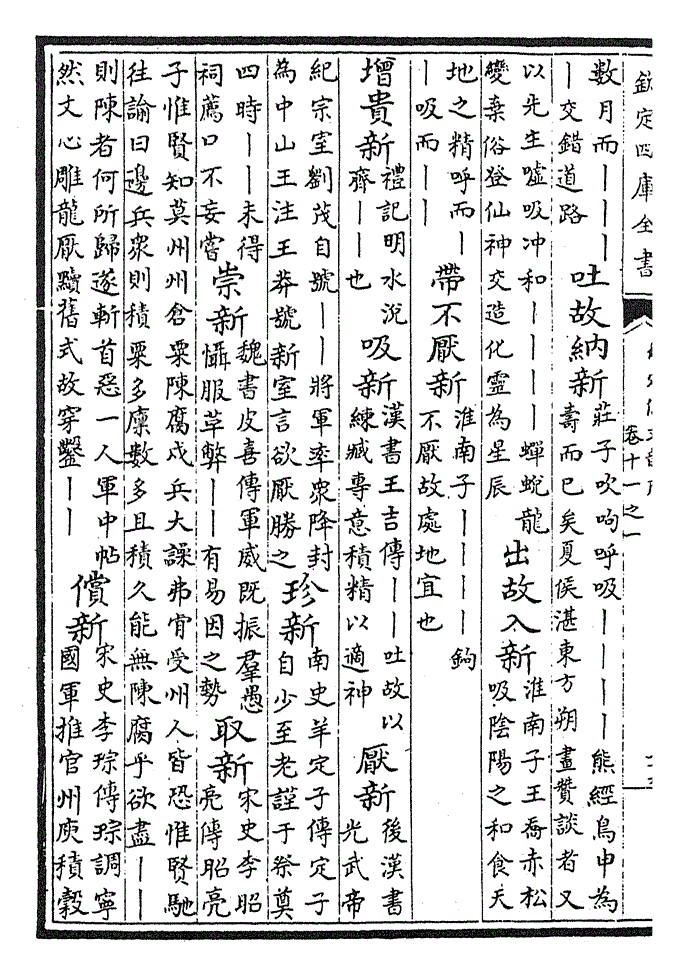 欽定四庫全書
卷十一之一
數月而｜｜｜
｜交錯道路
吐故納新
莊子吹呴呼吸｜｜｜｜熊經鳥申為
壽而已矣夏侯湛東方朔畫贊談者又
以先生噓吸冲和｜｜｜｜蟬蛻龍
變棄俗登仙神交造化靈為星辰
出故入新
淮南子王喬赤松
吸陰陽之和食天
地之精呼而｜
｜吸而｜｜
帶不厭新
淮南子｜｜｜｜鉤
不厭故處地宜也
增貴新
禮記明水涗
齊｜｜也
吸新
漢書王吉傳｜｜吐故以
練臧專意積精以適神
厭新
後漢書
光武帝
紀宗室劉茂自號｜｜將軍率衆降封
為中山王注王莽號新室言欲厭勝之
珍新
南史羊定子傳定子
自少至老謹于祭奠
四時｜｜未得
祠薦口不妄嘗
崇新
魏書皮喜傳軍威既振羣愚
懾服革弊｜｜有易因之勢
取新
宋史李昭
亮傳昭亮
子惟賢知莫州州倉粟陳腐戍兵大譟弗肯受州人皆恐惟賢馳
往諭曰邊兵衆則積粟多廩數多且積久能無陳腐乎欲盡｜｜
則陳者何所歸遂斬首惡一人軍中帖
然文心雕龍厭黷舊式故穿鑿｜｜
償新
宋史李琮傳琮調寧
國軍推官州庾積穀